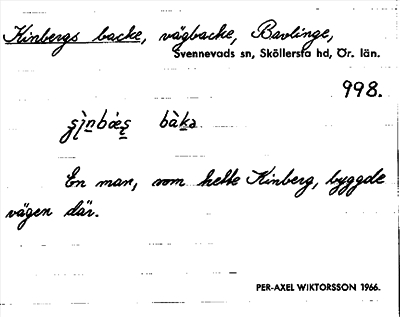 Kinbergs backe, vägbacke, Bavlinge,
Svennevads sn, Sköllersta hd, Ör. län.
998.
bàka
En man, som hette Kinberg, byggde
vägen där.
PER-AXEL WIKTORSSON 1966.